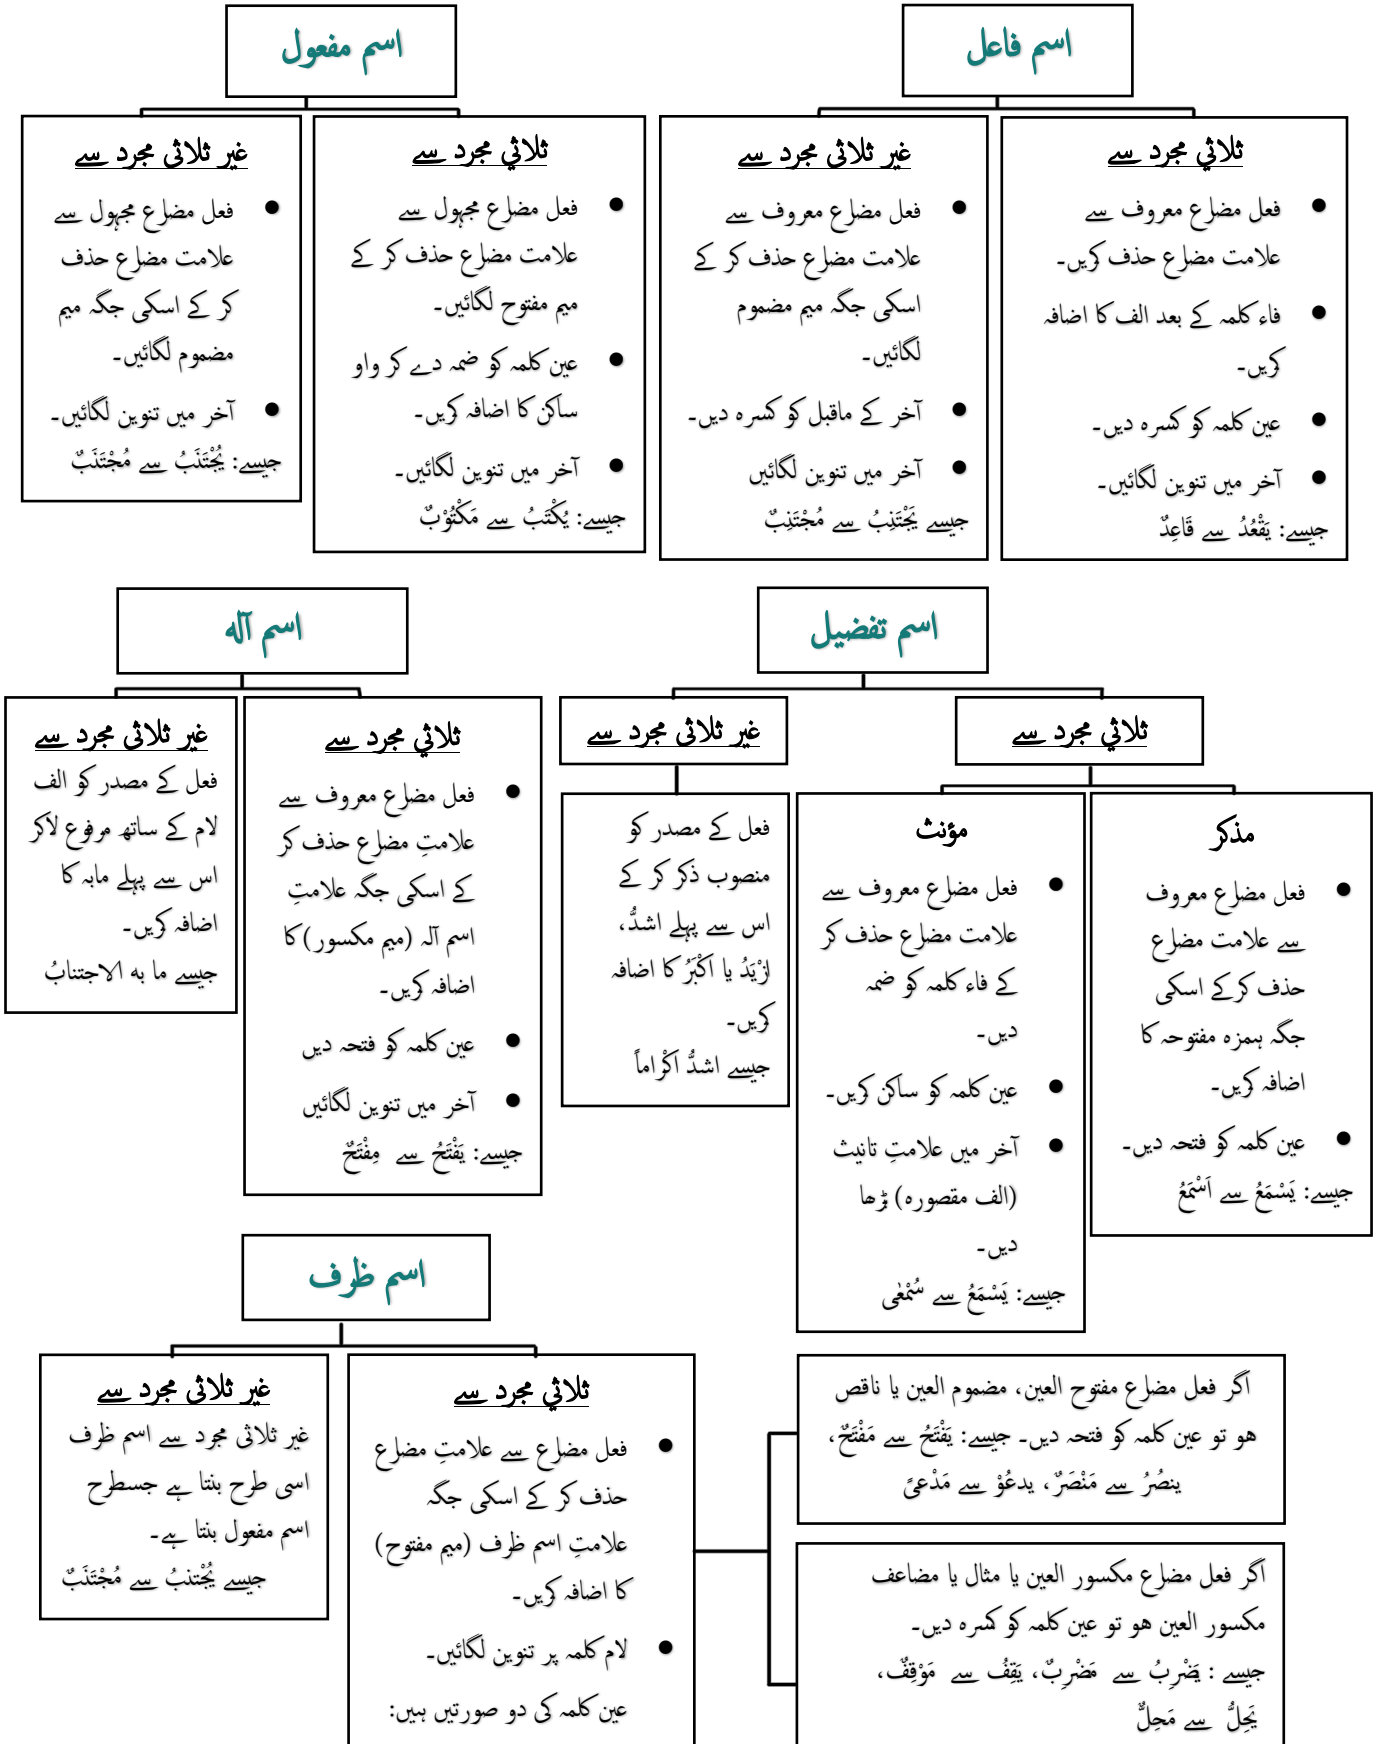 اسم فاعل
ثلاثي مجرد سے
● فعل مضارع معروف سے
علامت مضارع حذف کریں۔
● فاء کلمہ کے بعد الف کا اضافہ
کریں۔
● عین کلمہ کو کسرہ دیں۔
● آخر میں تنوین لگائیں۔
جیسے: يَقْعُدُ سے قَاعِدٌ
غیر ثلاثی مجرد سے
● فعل مضارع معروف سے
علامت مضارع حذف کر کے
اسکی جگہ میم مضموم
لگائیں۔
● آخر کے ماقبل کو کسرہ دیں۔
● آخر میں تنوین لگائیں
جیسے يَجْتَنِبُ سے مُجْتَنِبٌ
اسم مفعول
ثلاثي مجرد سے
● فعل مضارع مجہول سے
علامت مضارع حذف کر کے
میم مفتوح لگائیں۔
● عین کلمہ کو ضمہ دے کر واو
ساکن کا اضافہ کریں۔
● آخر میں تنوین لگائیں۔
جیسے: يُكْتَبُ سے مَكْتُوْبٌ
غیر ثلاثی مجرد سے
● فعل مضارع مجہول سے
علامت مضارع حذف
کر کے اسکی جگہ میم
مضموم لگائیں۔
● آخر میں تنوین لگائیں۔
جیسے: يُجْتَنَبُ سے مُجْتَنَبٌ
اسم تفضیل
ثلاثي مجرد سے
مذکر
● فعل مضارع معروف
سے علامت مضارع
حذف کرکے اسکی
جگہ ہمزہ مفتوحہ کا
اضافہ کریں۔
● عین کلمہ کو فتحہ دیں۔
جیسے: يَسْمَعُ سے اَسْمَعُ
مؤنث
● فعل مضارع معروف سے
علامت مضارع حذف کر
کے فاء کلمہ کو ضمہ
دیں۔
● عین کلمہ کو ساکن کریں۔
● آخر میں علامتِ تانیث
(الف مقصورہ) بڑھا
دیں۔
جیسے: يَسْمَعُ سے سُمْعٰى
غیر ثلاثی مجرد سے
فعل کے مصدر کو
منصوب ذکر کر کے
اس سے پہلے اشدُّ،
ازْيَدُ یا اَكْبَرُ کا اضافہ
کریں۔
جیسے اشدُّ اكْراماً
اسم آلہ
ثلاثي مجرد سے
● فعل مضارع معروف سے
علامتِ مضارع حذف کر
کے اسکی جگہ علامتِ
اسم آلہ (میم مکسور) کا
اضافہ کریں۔
● عین کلمہ کو فتحہ دیں
● آخر میں تنوین لگائیں
جیسے: يَفْتَحُ سے مِفْتَحٌ
غیر ثلاثی مجرد سے
فعل کے مصدر کو الف
لام کے ساتھ مرفوع لاکر
اس سے پہلے مابہ کا
اضافہ کریں۔
جیسے ما به الاجتنابُ
اسم ظرف
ثلاثي مجرد سے
● فعل مضارع سے علامتِ مضارع
حذف کر کے اسکی جگہ
علامتِ اسم ظرف (میم مفتوح)
کا اضافہ کریں۔
● لام کلمہ پر تنوین لگائیں۔
عین کلمہ کی دو صورتیں ہیں:
اگر فعل مضارع مفتوح العین، مضموم العین یا ناقص
ہو تو عین کلمہ کو فتحہ دیں۔ جیسے: يَفْتَحُ سے مَفْتَحٌ،
ينصُرُ سے مَنْصَرٌ، يدعُوْ سے مَدْعىً
اگر فعل مضارع مکسور العین یا مثال یا مضاعف
مکسور العین ہو تو عین کلمہ کو کسرہ دیں۔
جیسے : يَضْرِبُ سے مَضْرِبٌ، يَقِفُ سے مَوْقِفٌ،
يَحِلُّ سے مَحِلٌّ
غیر ثلاثی مجرد سے
غیر ثلاثی مجرد سے اسم ظرف
اسی طرح بنتا ہے جسطرح
اسم مفعول بنتا ہے۔
جیسے يُجْتنبُ سے مُجْتَنَبٌ